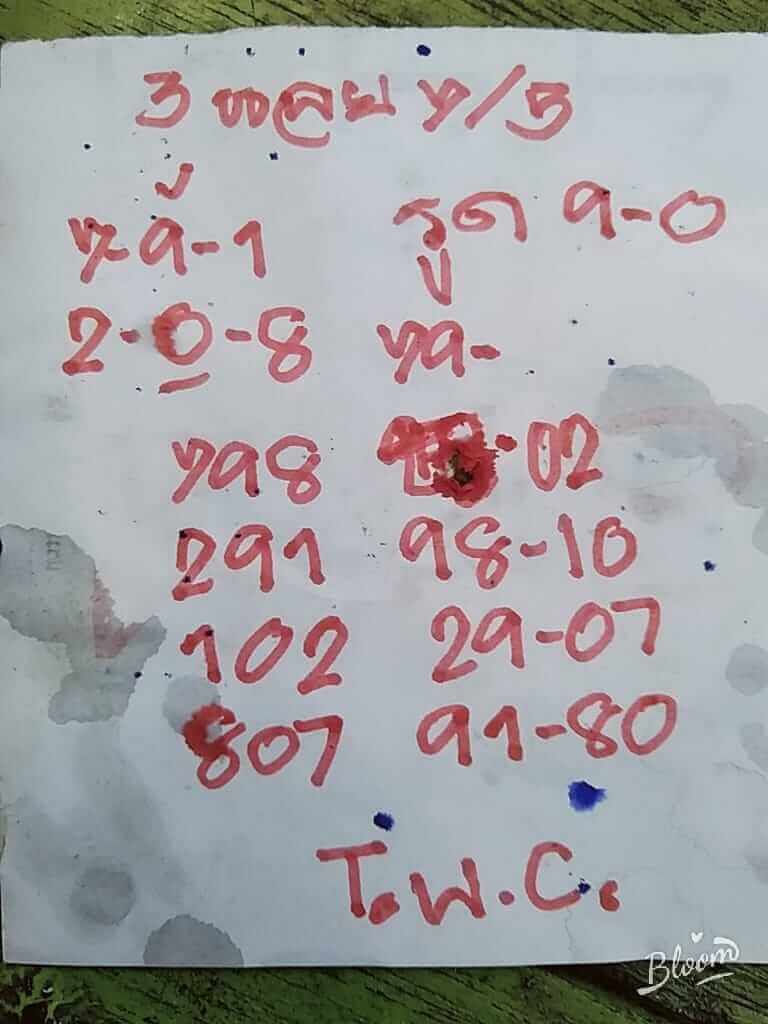 3 หลอย ๆ/5
7-9-1 รูด 9-0
2-0-8 79-
798 -02
291 98-10
102 29-07
807 91-80
T.พ.C.
Bloom